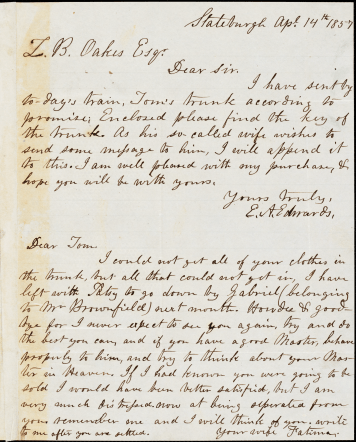 Stateburgh Apl. 14th 1857
Z. B. Oakes Esqr.
Dear Sir.
I have sent by
to-day's train, Tom's trunk according to
promise; Enclosed please find the key of
the trunk. As his so-called wife wishes to
send some message to him, I will append it
to this. I am well pleased with my purchase, &
hope you will be with yours.
Yours truly,
E. A. Edwards,
Dear Tom.
I could not get all of your clothes in
the trunk, but all that could not got in, I have
left with Patsy to go down by Gabriel (belonging
to Mr Brownfield) next month. Howdie & good-
bye for I never expect to see you again, try and do
the best you can, and if you have a good Master, behave
properly to him, and try to think about your Mas-
ter in Heaven. If I had known you were going to be
sold I would have been better satisfied, but I am
very much distressed now at being seperated from
you. remember me and I will think of you. write
to me after you are settled. Your wife Fatima.